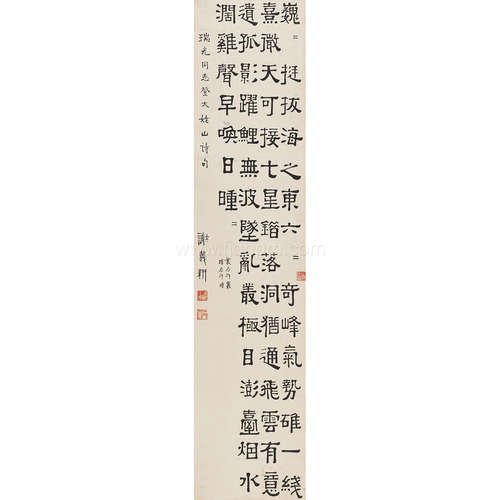 巍〻挺拔海之東六〻奇峰氣勢雄一綫
熹微天可接七星錯落洞猶通飛雲有意
遺孤影躍鯉無波墜亂叢極目澎臺烟水
濶雞聲早喚日瞳〻
瑞光同志登太姥山詩句
謝義耕